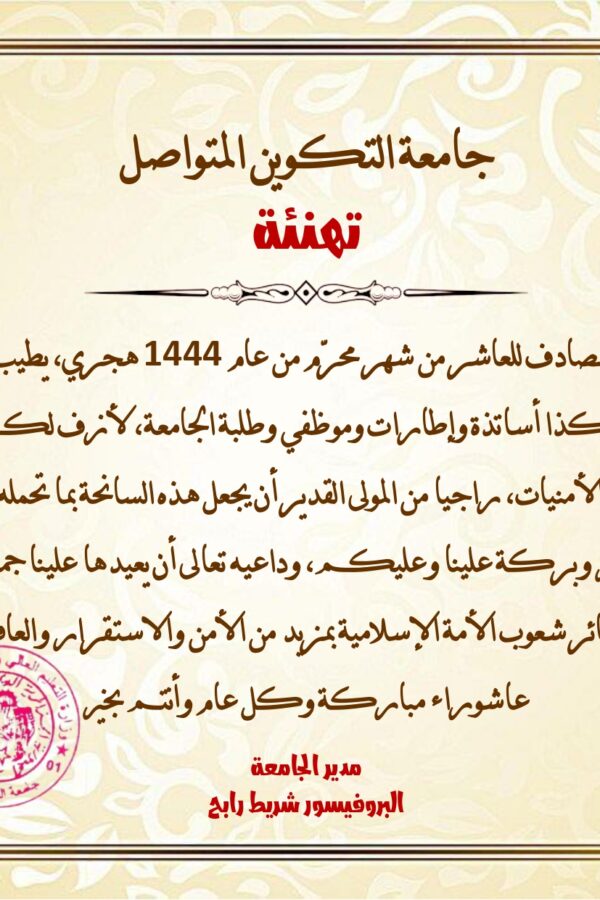 جامعة التكوين المتواصل
تهنئة
صادف للعاشر من شهر محرّم من عام 1444 هجري، يطيب
كذا أساتذة وإطارات وموظفي وطلبة الجامعة، لأزف لكـ
الأمنيات، راجيا من المولى القدير أن يجعل هذه السانحة بما تحمله
وبركة علينا وعليكم، وداعيه تعالى أن يعيدها علينا جمـ
ئر شعوب الأمة الإسلامية بمزيد من الأمن والاستقرار والعا
عاشوراء مباركة وكل عام وأنتم بخير
وزارة التعليم العالي
01
مدير الجامعة
البروفيسور شريط رابح